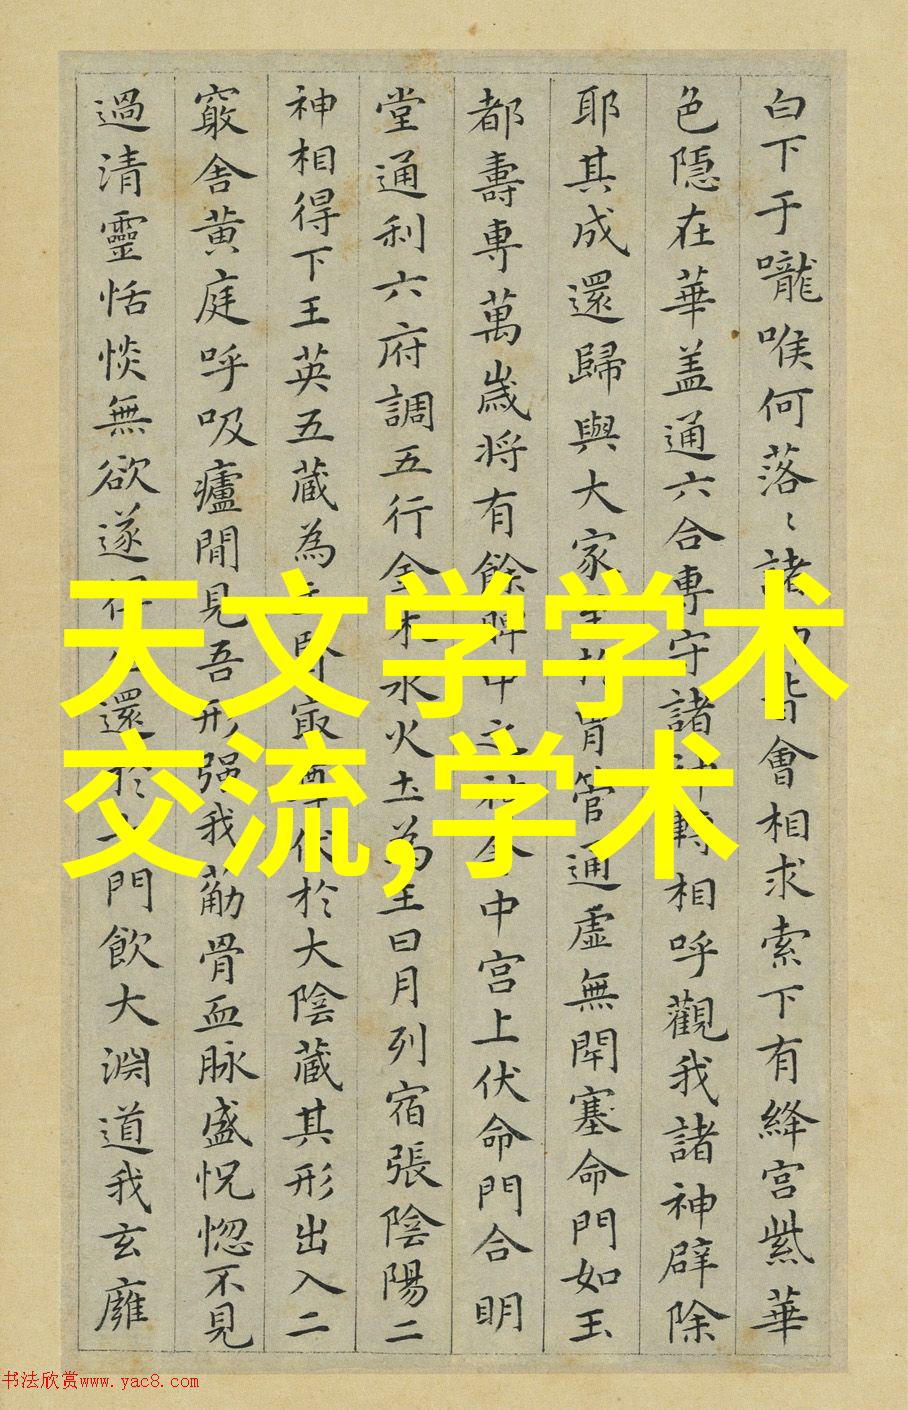 白下于嚨喉何落〻諸神皆會相求索下有絳宮紫華
色隱在華盖通六合專守諸神轉相呼觀我諸神辟除
耶其成還歸與大家至於胃管通虛無閉塞命門如玉
都壽專萬歲將有餘脾中之神舍中宮上伏命門合明
堂通利六府調五行金木水火土為王日月列宿張陰陽二
神相得下王英五藏為主腎寂尊伏於大陰藏其形出入二
竅舍黃庭呼吸廬間見吾形强我筋骨血脉盛怳惚不見
過清靈恬惔無欲遂得還於七門飲大淵道我玄廱
天文学学术
交流,学术
书法欣赏www.yac8.com